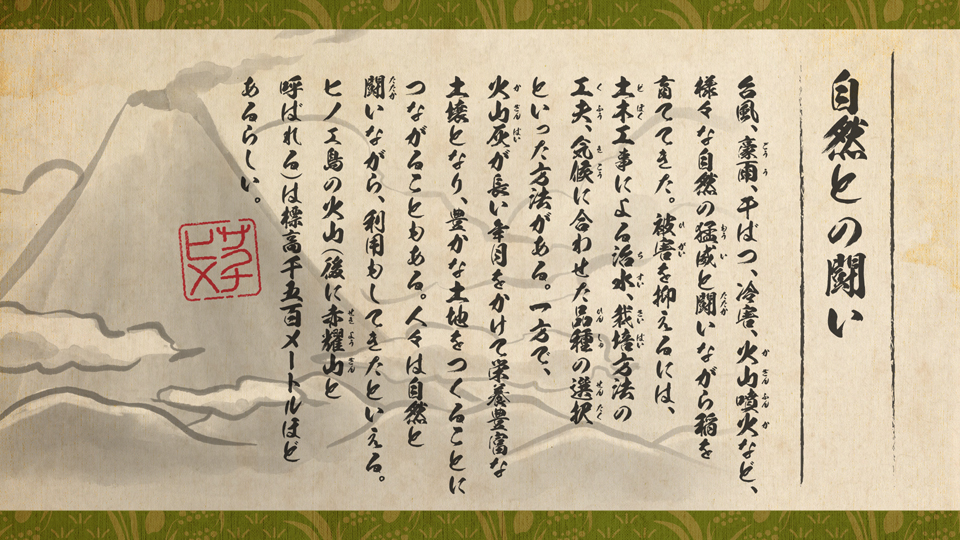 自然との闘い
台風、豪雨、干ばつ、冷害、火山噴火など、
様々な自然の猛威と闘いながら稲を
育ててきた。被害を抑えるには、
土木工事による治水、栽培方法の
工夫、気候に合わせた品種の選択
といった方法がある。一方で、
火山灰が長い年月をかけて栄養豊富な
土壌となり、豊かな土地をつくることに
つながることもある。人々は自然と
闘いながら、利用もしてきたといえる。
ヒノエ島の火山(後に赤耀山と
呼ばれる)は標高千五百メートルほど
あるらしい。
サクナヒメ